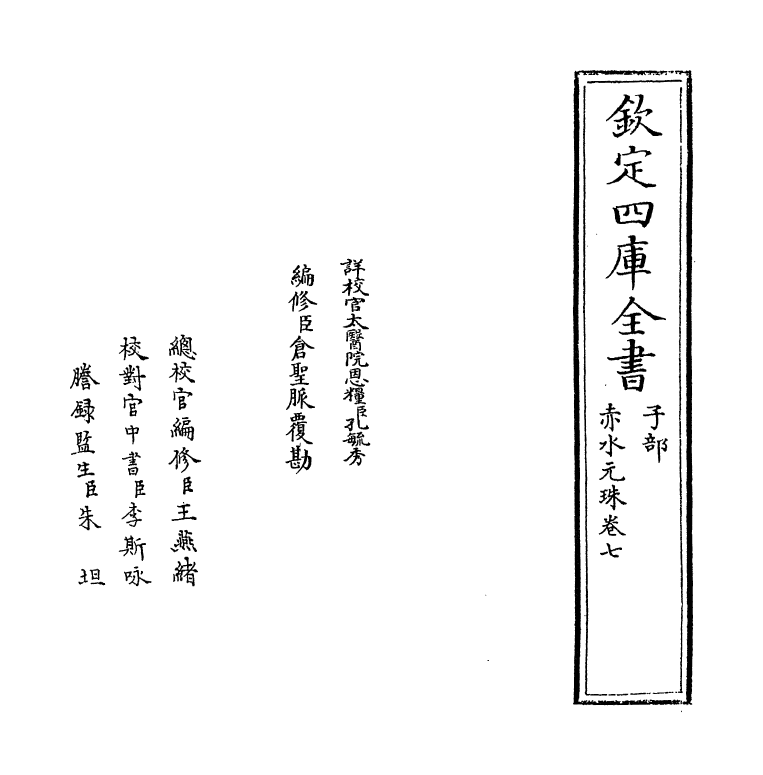 欽定四庫全書
子部
赤水元珠卷七
詳校官太醫院恩糧臣孔毓秀
編修臣倉聖脈覆勘
總校官編修臣王燕緒
校對官中書臣李斯咏
謄録監生臣朱坦